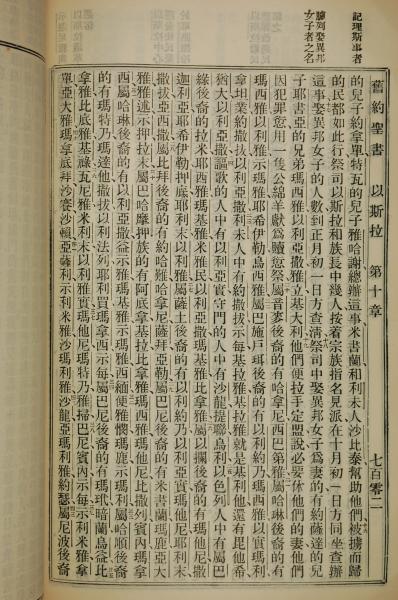 記理斯事者
臚列娶異邦
女子者之名
舊約聖書 以斯拉 第十章 七百零二
的兒子約拿單特瓦的兒子雅哈謝總辦這事米書蘭和利未人沙比泰幫助他們被擄而歸
的民都如此行祭司以斯拉和族長中幾人按着宗族指名見派在十月初一日方同坐查辦
這事娶異邦女子的人數到正月初一日方查清祭司中娶異邦女子爲妻的有約薩達的兒
子耶書亞的兄弟瑪西雅以利亞撒雅立基大利他們便拉手定盟說必要休他們的妻他們
因犯罪應用一隻公綿羊獻爲贖愆祭屬音麥後裔的有哈拿尼西巴第雅屬哈琳後裔的有
瑪西雅以利雅示瑪雅耶希伊勒烏西雅屬巴施戶珥後裔的有以利約乃瑪西雅以實瑪利
拿坦業約撒拔以利亞撒利未人中有約撒拔示每基拉雅基拉雅就是基利他還有毘他希
猶大以利亞撒謳歌的人中有以利亞實守門的人中有沙龍提聯烏利以色列人中有屬巴
綠後裔的拉米耶西雅瑪基雅米雅民以利亞撒瑪基雅比拿雅屬以攔後裔的有瑪他尼撒
迦利亞耶希伊勒押底耶利末以利雅屬薩土後裔的有以利約乃以利亞實瑪他尼耶利末
撒拔亞西撒屬比拜後裔的有約哈難哈拿尼薩拜亞勒屬巴尼後裔的有米書蘭瑪鹿亞大
雅雅述示押拉末屬巴哈摩押族的有阿底拿基拉比拿雅瑪西雅瑪他尼比撒列賓內瑪拿
西屬哈琳後裔的有以利亞撒益示雅瑪基雅示瑪雅西緬便雅憫瑪鹿示瑪利屬哈順後裔
的有瑪特乃瑪達他撒拔以法列耶利買瑪拿西示每屬巴尼後裔的有瑪玳暗蘭烏益比
拿雅比底雅基祿瓦尼雅米利末以利雅實瑪他尼瑪特乃雅掃巴尼賓內示每示利米雅拿
單亞大雅瑪拿底拜沙賽沙賴亞薩利示利米雅沙瑪利雅沙龍亞瑪利雅約瑟屬尼波後裔